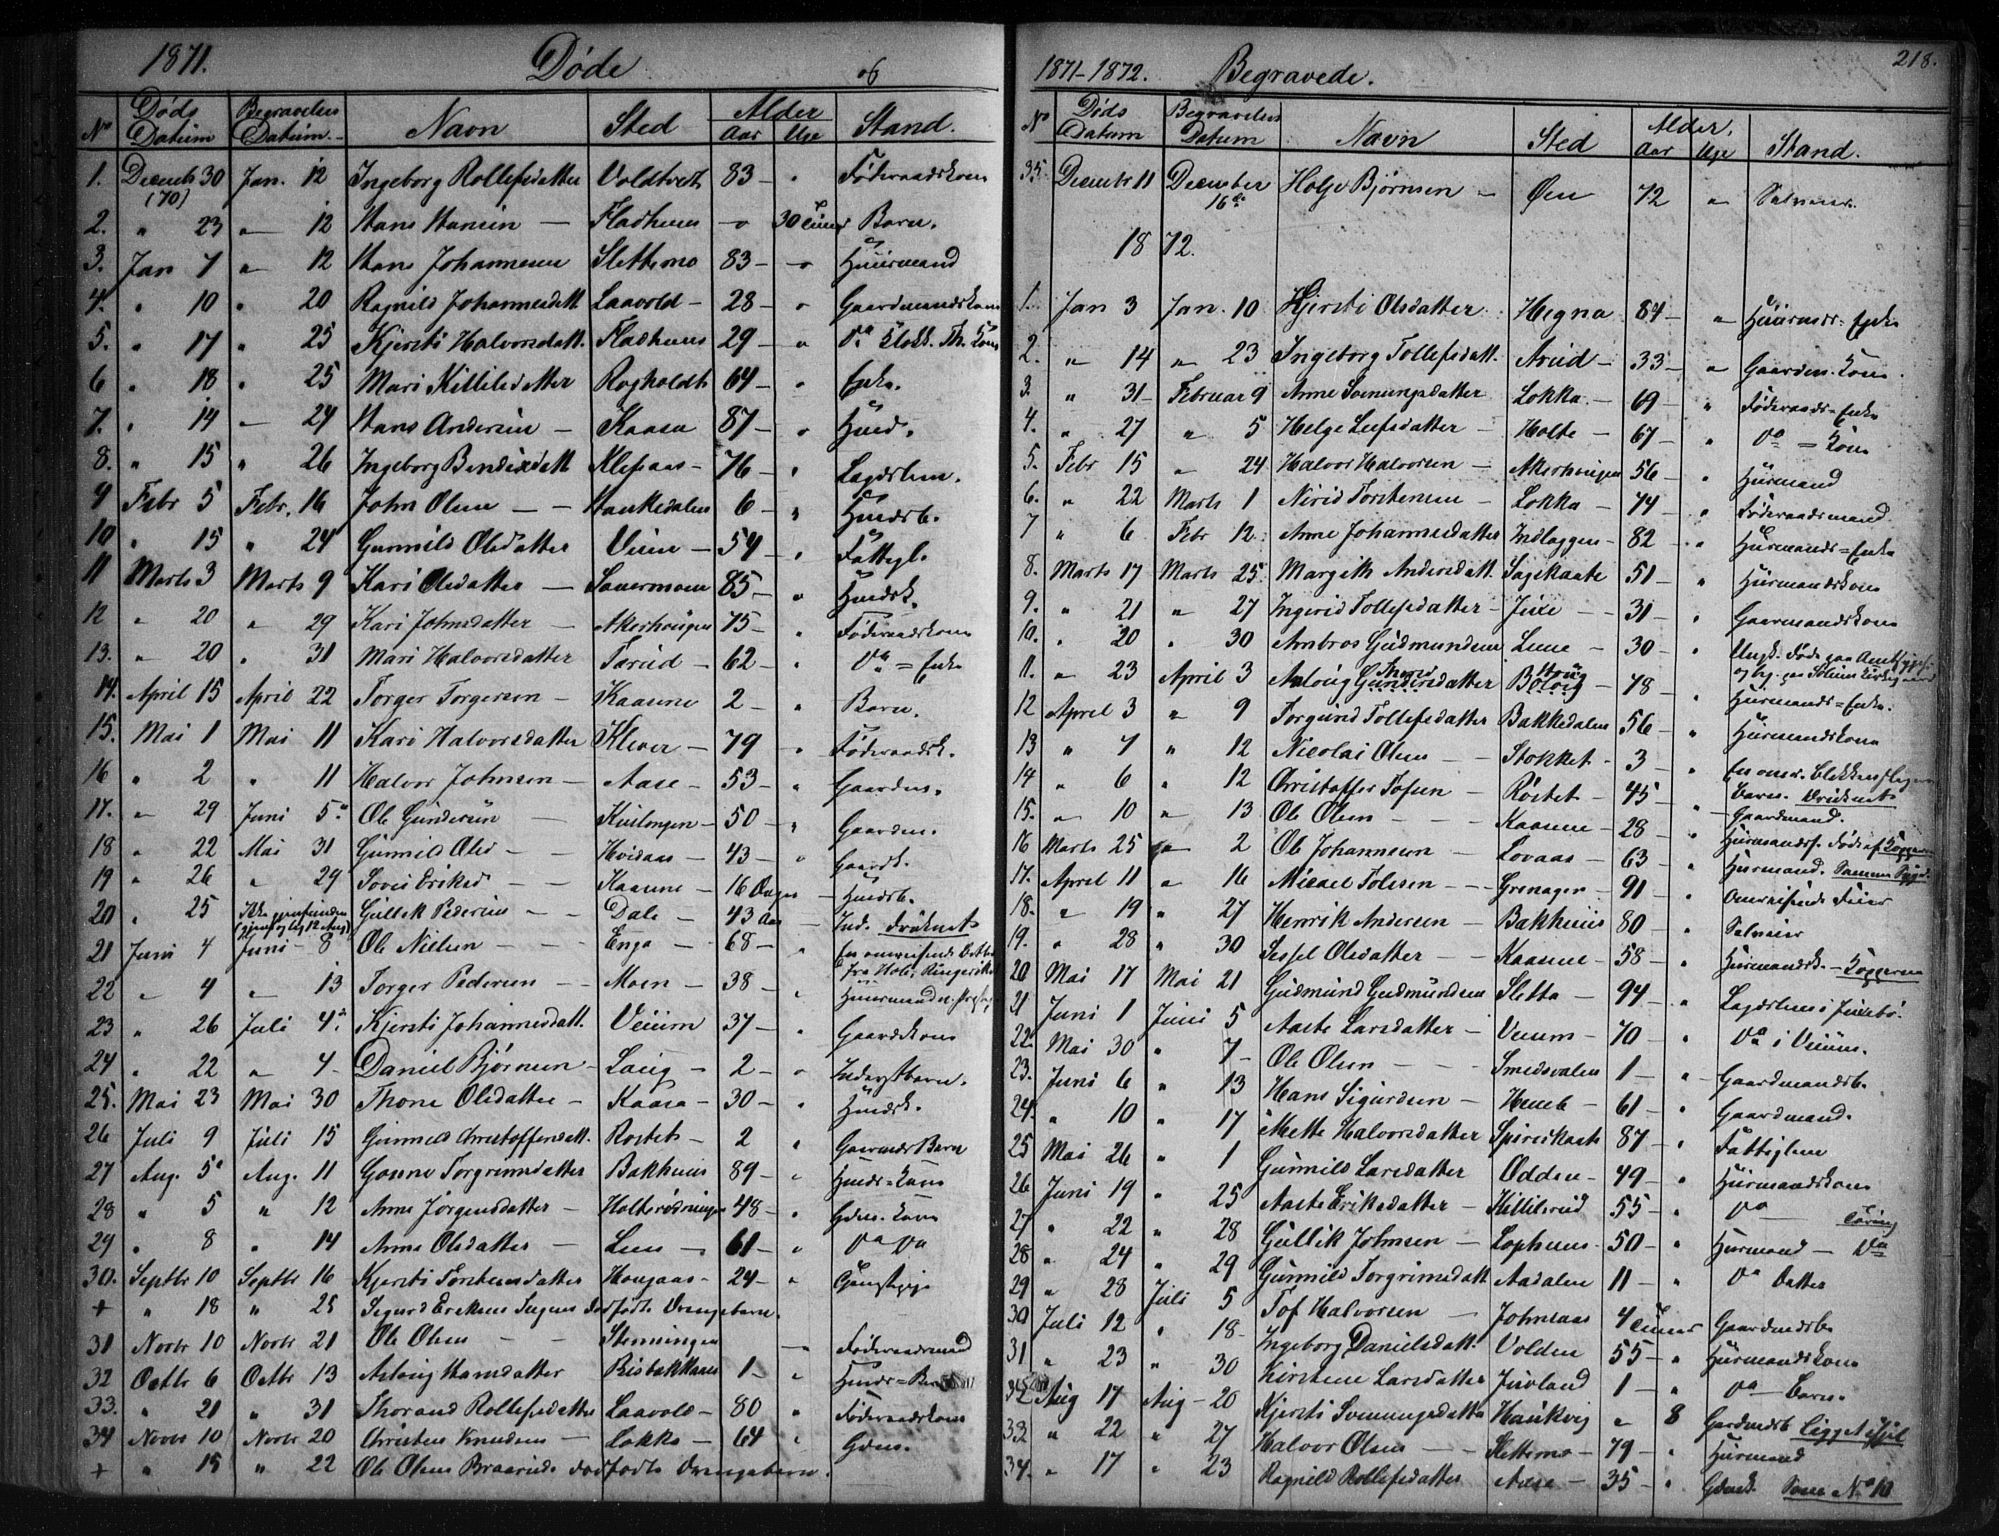 1871. Døde og
No Døds Datum Begravelses Datum. Navn Sted Alder Aar Uge Stand.
1. Decemb 30 (70) Jan. 12 Ingeborg Rollefsdatter Voldtvedt 83 — " Føderaadskone
2. " 23 " 12 Hans Hansen — Fladhuus — 30 Timer Barn.
3. Jan 7 " 12 Hans Johannesen Slettemo 83 — Huusmand
4. " 10 " 20 Ragnild Johannesdatt Laavold — 28 — " Gaardmandskone
5. " 17 " 25 Kjersti Halvorsdatt. Fladhuus 29 — " Do Klokk. Th. Kone
6 " 18 " 25 Mari Killilsdatter Rogholdt 64 — " Enke.
7. " 19 — 24 Hans Andersen — Kaasa 87 — " Husd.
8. " 15 " 26 Ingeborg Bendixdatt Klepaas — 76 — " Lægdslem.
9 Febr 5 Febr. 16 John Olsen — — Haukedalen 6 — " Husdsb.
10 " 15 " 24 Gunnild Olsdatter Veum — 54 — " Fattigl.
11 Marts 3 Marts 9 Kari Olsdatter — Sauermoen 85 — " Husdsk.
12 " 20 " 29 Kari Johnsdatter — Akerhougen 75 — " Føderaadskone
13. " 20 " 31 Mari Halvorsdatter Tarud — 62 — " Do = Enke
14. April 15 April 22 Torger Torgersen — Kaasene 2 — " Barn.
15. Mai 1 Mai 11 Kari Halvorsdatter Klever — 79 " Føderaadsk.
16 " 2 " 11 Halvor Johnsen — Aase — 53 — " Gaardm.
17. " 29 Juni 5 Ole Gundersen — 50 — " Gaardm.
18 " 22 Mai 31 Gunnild Olsd — — Hvidaas — 43 — " Gaardk.
19 " 26 " 29 Eriksd — Kaasene — 16 Dage — Husdsb.
20 " 25 Ikke gjenfunden Gullik Pedersen — — Dale — 43 Aar Ind. Druknet
21 Juni 4 Juni 8 Ole Nielsen — — Enga — 68 — " En omreisende
fra Hole, Ringerike
22 " 4 " 13 Torger Pedersen — — Moen — 38 — " Huusmand
23 " 26 Juli 4 Kjersti Johannesdatt. Veum 37 — " Gaardkone
24 " 22 " 4 Daniel Bjørnsen — Laug — 2 — " Inderstbarn.
25. Mai 23 Mai 30 Thone Olsdatter — Kaasa — 30 — " Husdsk.
26 Juli 9 Juli 15 Gunnild Christoffersdatt. Rostet — 2 " Gaarmds Barn
27 Aug. 5 Aug. 11 Gonne Torgrimsdatter Bakhuus 89 — " Husds = Kone
28 " 5 " 12 Anne Jørgensdatter — Holterødningen 48 — " Gdm. Kone
29 " 8 " 14 Anne Olsdatter — Lun — 61 — " Do Do
30. Septbr 10 Septbr 16 Kjersti Torstensdatter Hougaas — 24 — " Gaustpige
+ " 18 " 25 Sigurd Eriksens dødfødte Drengebarn.
31 Novbr 10 Novbr 21 Ole Olsen — — Stenningen — Føderaadsmand
32 Octbr 6 Octbr 13 Aslaug Hansdatter Bisbakhaus 1 — " Husds = Barn
33. " 21 " 31 Thorand Rollefsdatter Laavold — 80 " Føderaadskone
34 Novbr 10 Novbr 20 Christen Knudsen — Lokka — 64 " Gdm.
+ " 15 " 22 Ole Olsen Braaruds dødfødte Drengebarn.
1871-1872. Begravede. 218.
No Døds Datum Begravelses Datum Navn Sted Alder. Aar Uge Stand.
35 Decembr 11 December 16de Holge Bjørnsen — Øen 72 " Selveier.
1872.
1. Jan 3 Jan. 10 Kjersti Olsdatter Hegna 84 — " Huusmds. Enke
2. " 14 " 23 Ingeborg Tollefsdatt. Arud — 33 — " Gaardm. Kone
3 " 31 Februar 9 Anne Sveinungsdatter Lokka — 69 — " Føderaads = Enke
4. " 27 " 5 Helge Leifsdatter — Holte — 67 — " Do = Kone
5. Febr 15 " 24 Halvor Halvorsen — Akerhougen 56 — " Huusmand
6. " 22 Marts 1 Nirid Torstensen — Lokka — 74 — " Føderaadsmand
7 " 6 Febr 12 Anne Johannesdatter Indlaggen — 82 — " Huusmands = Enke
8. Marts 17 Marts 25 Margith Andersdatt. Sagekaate 51 — " Huusmandskone
9. " 21 " 27 Ingerid Tollefsdatter — Juve — 31 — " Gaarmandskone
10. " 20 " 30 Ambros Gudmundsen Lene — 30 — " Ungk. Døde paa
11. " 23 April 3 Aslaug Gundersdatter 78 — " Huusmands = Enke.
12 April 3 " 9 Torgund Tollefsdatter Bakkedalen 56 — " Huusmandskone
13 " 7 " 12 Nicolai Olsen — Stokket — 3 — " En omr. barn. Druknet
14 " 6 " 12 Christoffer Tofsen — Rostet — 45 — " Gaardmand.
15. " 10 " 13 Ole Olsen — — Kaasene — 28 — " Huusmands. Død af Kopperne
16 Marts 25 " 2 Ole Johannesen — Lovaas — 63 " Huusmand. Samme Sygd.
17. April 11 " 16 Micael Tolesen — — Grenager — 91 — " Omreisende
18. " 19 " 27 Henrik Andersen — Bakhuus 80 " Selveier
19. " 28 " 30 Sissel Olsdatter — Kaasene — 58 — " Huusmandsk. — Kopperne
20 Mai 17 Mai 21 Gudmund Gudmundsen Sletta — 94 — " Lægdslem i Juvebø.
21 Juni 1 Juni 5 Aaste Larsdatter — Veum — 70 — " Do i Veum.
22. Mai 30 " 7 — Ole Olsen — — Smedsvalen 1 — " Gaardmandsb.
23. Juni 6 " 13 Hans Sigurdsen — Heneb — 61 — " Gaardmand.
24. " 10 " 17 Mette Halvorsdatter Spirekaate 87 — " Fattiglem
25 Mai 26 " 1 Gunnild Larsdatter Odden — 49 — " Huusmandskone
26 Juni 19 " 25 Aaste Eriksdatter — Killilsrud 55 — " Do Tæring
27 " 22 " 28 Gullik Johnsen — Lophuus — 50 — " Huusmand — Do
28 " 24 " 29 Gunnild Torgrimsdatt Aadalen 11 — " Do Datter
29 " 28 Juli 5 Tof Halvorsen — Johnsaas 4 Timer Gaardmdsb
30 Juli 12 " 18 — Ingeborg Danielsdatt. Volden 55 — " Huusmandskone
31 " 23 " 30 Kirstene Larsdatter Juvland 1 — " Do — Barn.
32 Aug 17 Aug — 20 Kjersti Sveinungsdatter Haukvig " 8 Gardmdsb Ligget ihjel
33 " 22 " 27 Halvor Olsen — — Slettemo — 79 — " Huusmand
34. " 17 " 23 Ragnild Rollefsdatter Aase — 35 — " Gdmk. Som No 10